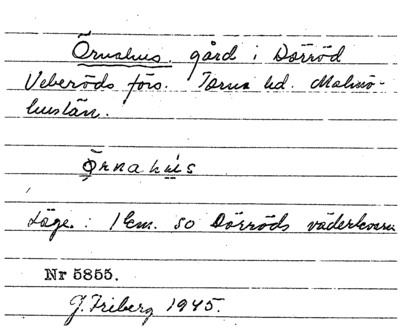 Örnahus. gård i Dörröd
Veberöds förs. Torna hd. Malmö-
huslän.
Örnahús
Läge: 1 km. SO Dörröds väderkvarn
Nr 5855.
G. Friberg 1945.